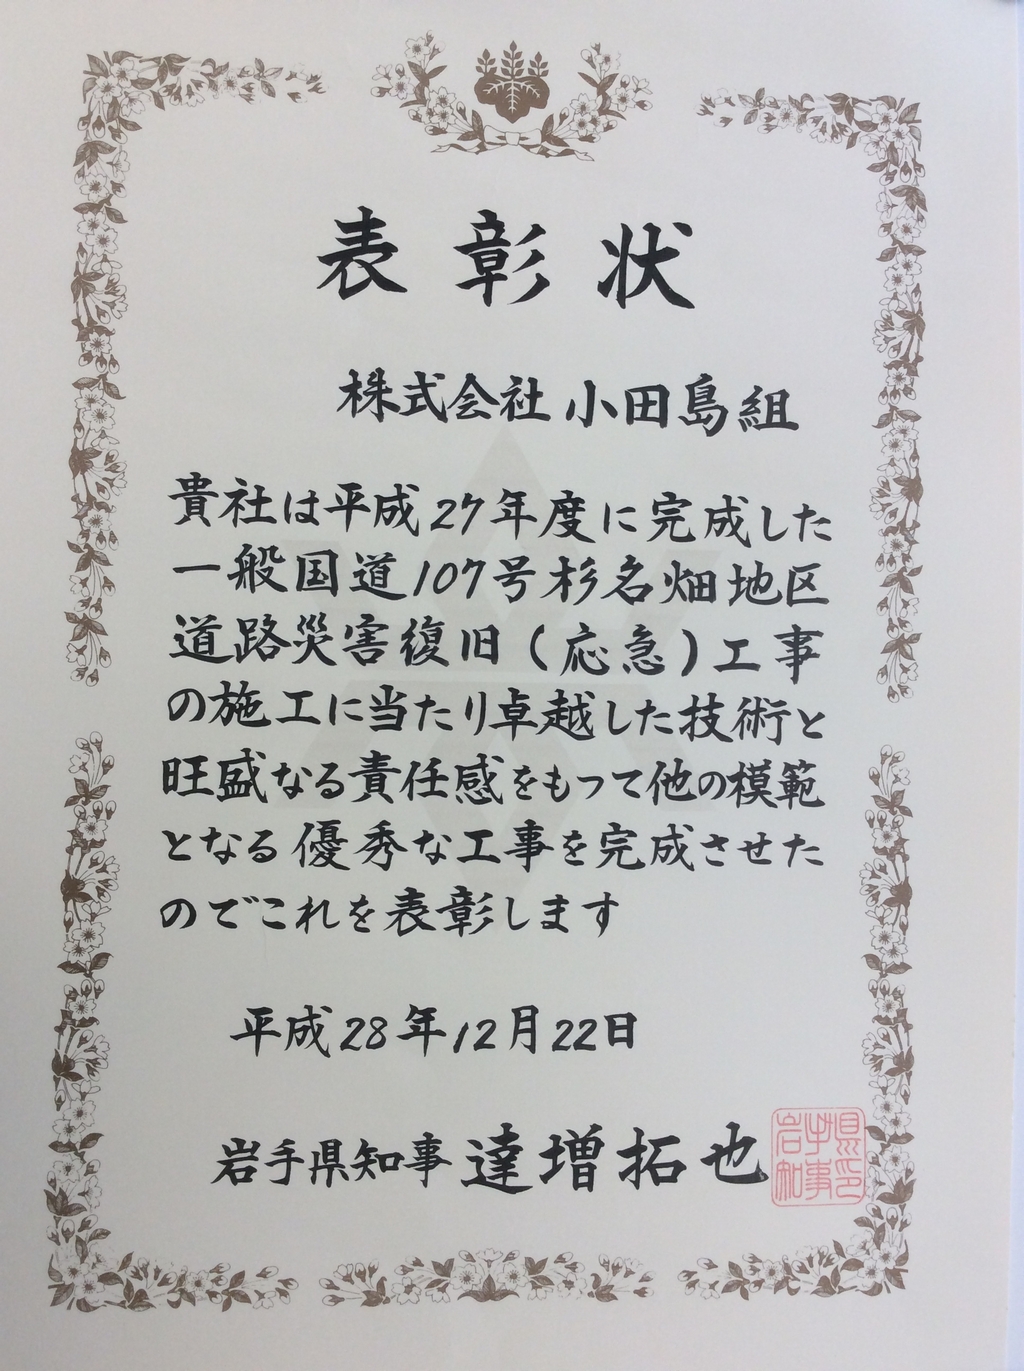 表彰状
株式会社 小田島組
貴社は平成27年度に完成した
一般国道107号杉名畑地区
道路災害復旧(応急)工事
の施工に当たり卓越した技術と
旺盛なる責任感をもって他の模範
となる優秀な工事を完成させた
のでこれを表彰します
平成28年12月22日
岩手県知事 達増拓也
岩手県知事印